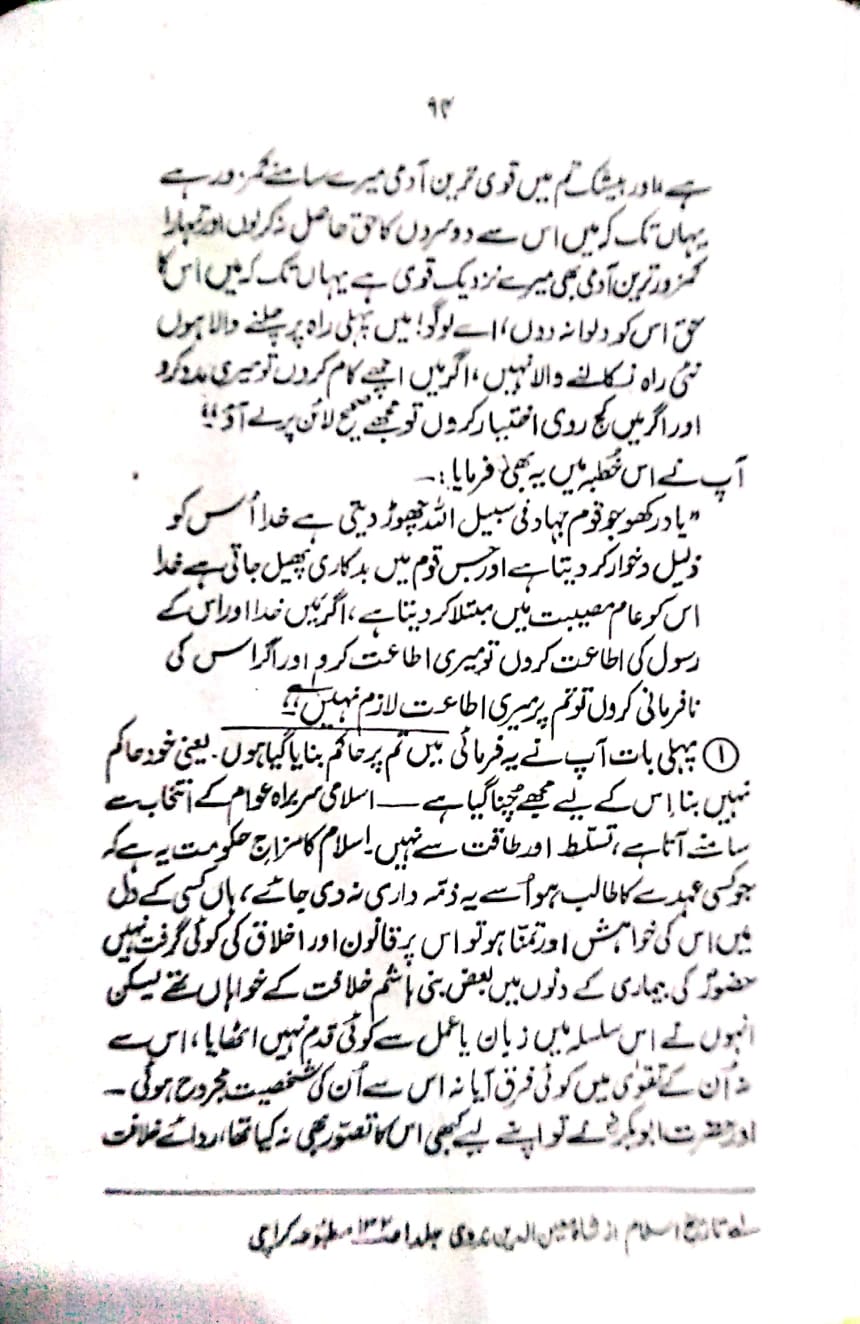 ۹۴
ہے ہاور بیشک تم میں قوی ترین آدمی میرے سامنے کمزور ہے
یہاں تک کہ میں اس سے دوسروں کا حق حاصل نہ کرلوں اور تمہارا
کمزور ترین آدمی بھی میرے نزدیک قوی ہے یہاں تک کہ میں اس کا
حق اس کو دلوا نہ دوں، اے لوگو! میں پہلی راہ پر چلنے والا ہوں
نئی راہ نکالنے والا نہیں، اگر میں اچھے کام کروں تو میری مدد کرو
اور اگر میں کج روی اختیار کروں تو مجھے صحیح لائن پر لے آؤ“
آپ نے اس خطبہ میں یہ بھی فرمایا:۔
”یاد رکھو جو قوم جہاد فی سبیل اللہ چھوڑ دیتی ہے خدا اُس کو
ذلیل و خوار کر دیتا ہے اور جس قوم میں بدکاری پھیل جاتی ہے خدا
اس کو عام مصیبت میں مبتلا کر دیتا ہے، اگر میں خدا اور اس کے
رسول کی اطاعت کروں تو میری اطاعت کرو اور اگر اس کی
نافرمانی کروں تو تم پر میری اطاعت لازم نہیں“ لے
① پہلی بات آپ نے یہ فرمائی میں تم پر حاکم بنایا گیا ہوں۔ یعنی خود حاکم
نہیں بنا۔ اس کے لیے مجھے چُنا گیا ہے — اسلامی سربراہ عوام کے انتخاب سے
سامنے آتا ہے، تسلط اور طاقت سے نہیں۔ اسلام کا مزاجِ حکومت یہ ہے کہ
جو کسی عہدے کا طالب ہو اُسے یہ ذمہ داری نہ دی جائے، ہاں کسی کے دل
میں اس کی خواہش اور تمنّا ہو تو اس پر قانون اور اخلاق کی کوئی گرفت نہیں
حضورؐ کی بیماری کے دنوں میں بعض بنی ہاشم خلافت کے خواہاں تھے لیکن
انہوں نے اس سلسلہ میں زبان یا عمل سے کوئی قدم نہیں اٹھایا، اس سے
نہ اُن کے تقویٰ میں کوئی فرق آیا نہ اس سے اُن کی شخصیت مجروح ہوئی۔
اور حضرت ابوبکرؓ نے تو اپنے لیے کبھی اس کا تصوّر بھی نہ کیا تھا، ردائے خلافت
لے تاریخ اسلام از شاہ معین الدین ندوی جلد ا صـ ۱۳۲ مطبوعہ کراچی